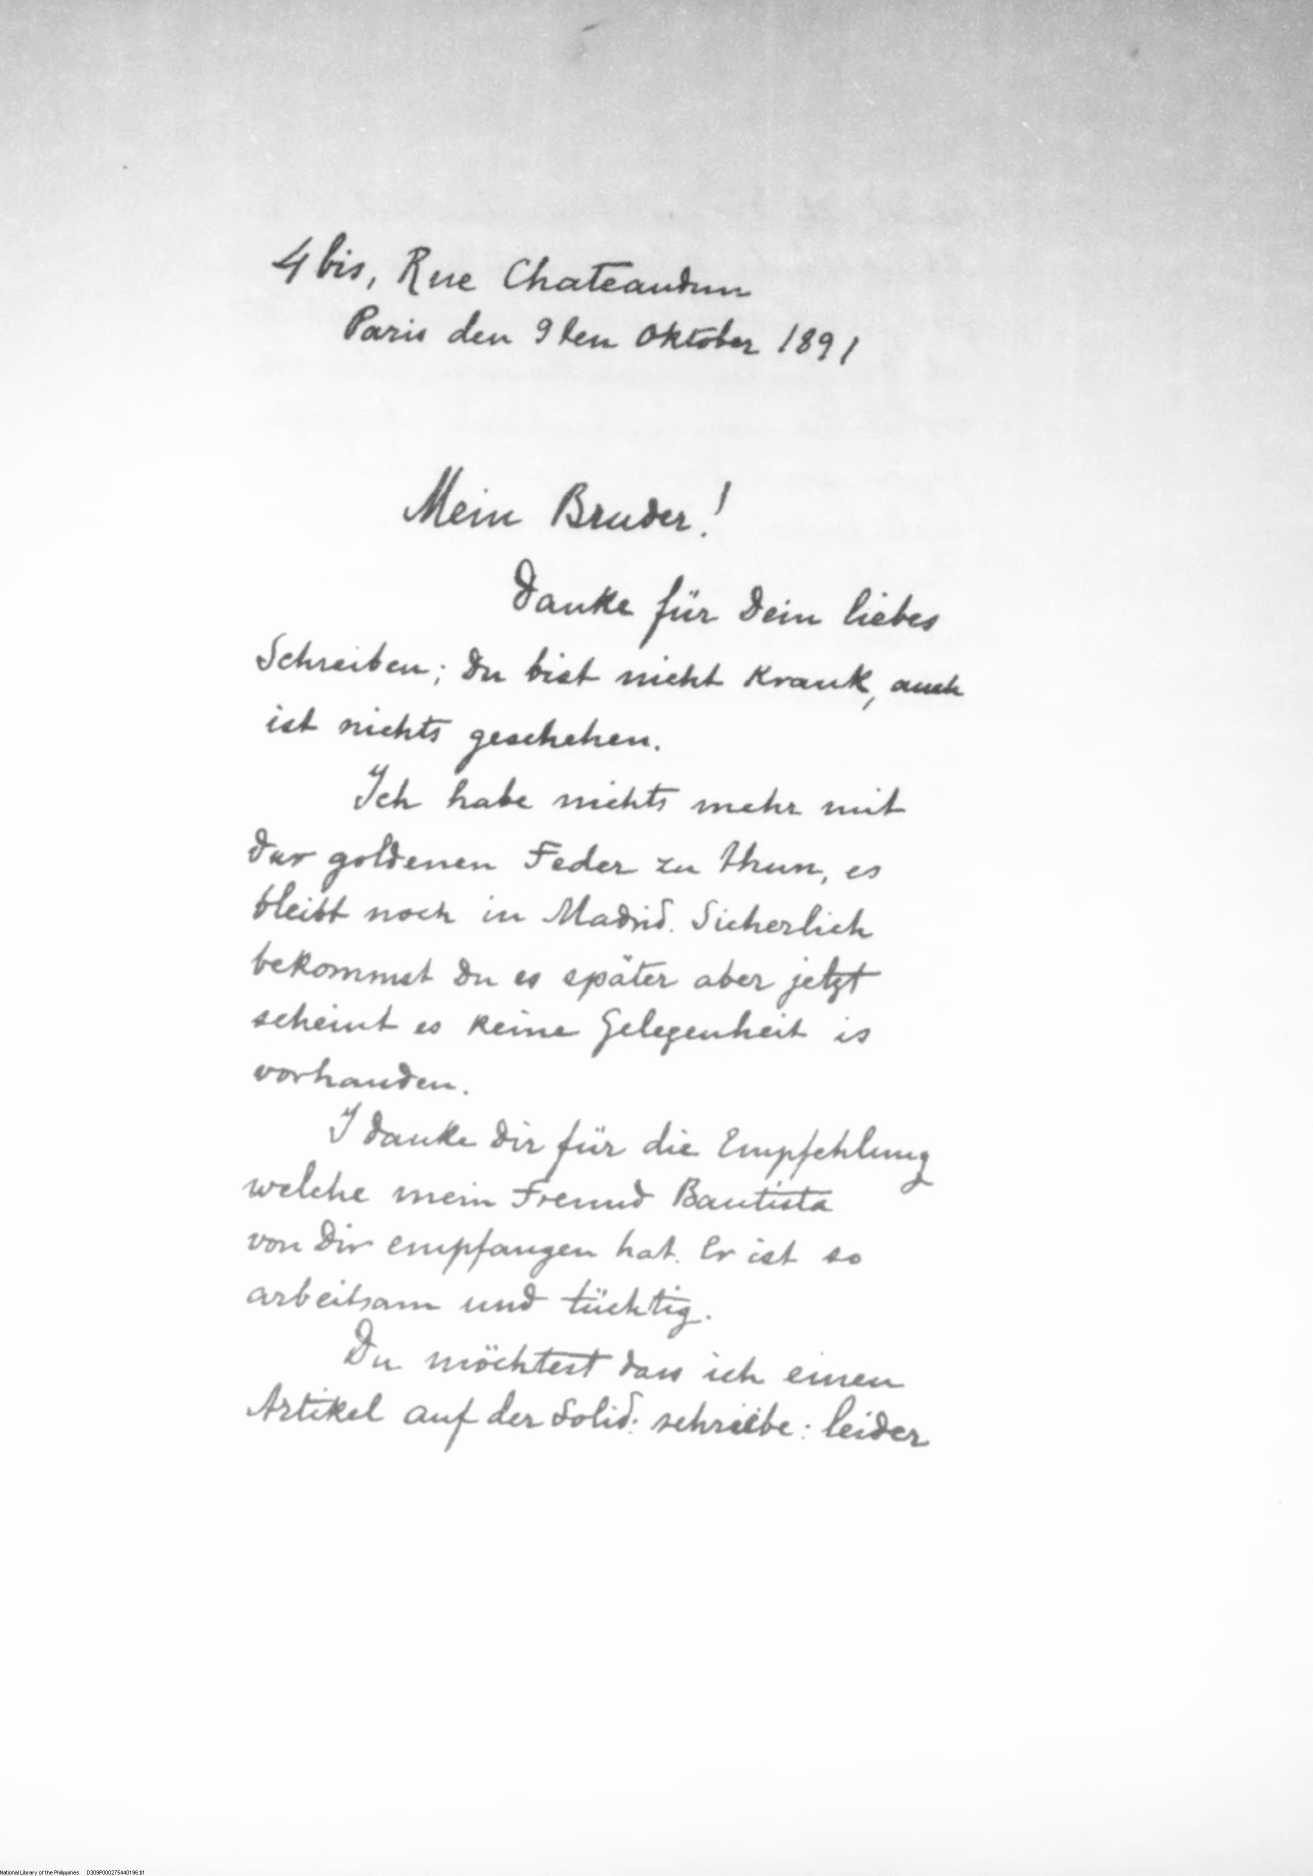 4 bis, Rue Chateaudun
Paris den 9ten Oktober 1891
Mein Bruder!
Danke für Dein liebes
Schreiben; Du bist nicht krank, auch
ist nichts geschehen.
Ich habe nichts mehr mit
der goldenen Feder zu thun, es
bleibt noch in Madrid. Sicherlich
bekommst Du es später aber jetzt
scheint es keine Gelegenheit is
vorhanden.
I danke Dir für die Empfehlung
welche mein Freund Bautista
von Dir empfangen hat. Er ist so
arbeitsam und tüchtig.
Du möchtest dass ich einen
Artikel auf der Solid: schreibe: leider
National Library of the Philippines D309P000275440196.tif